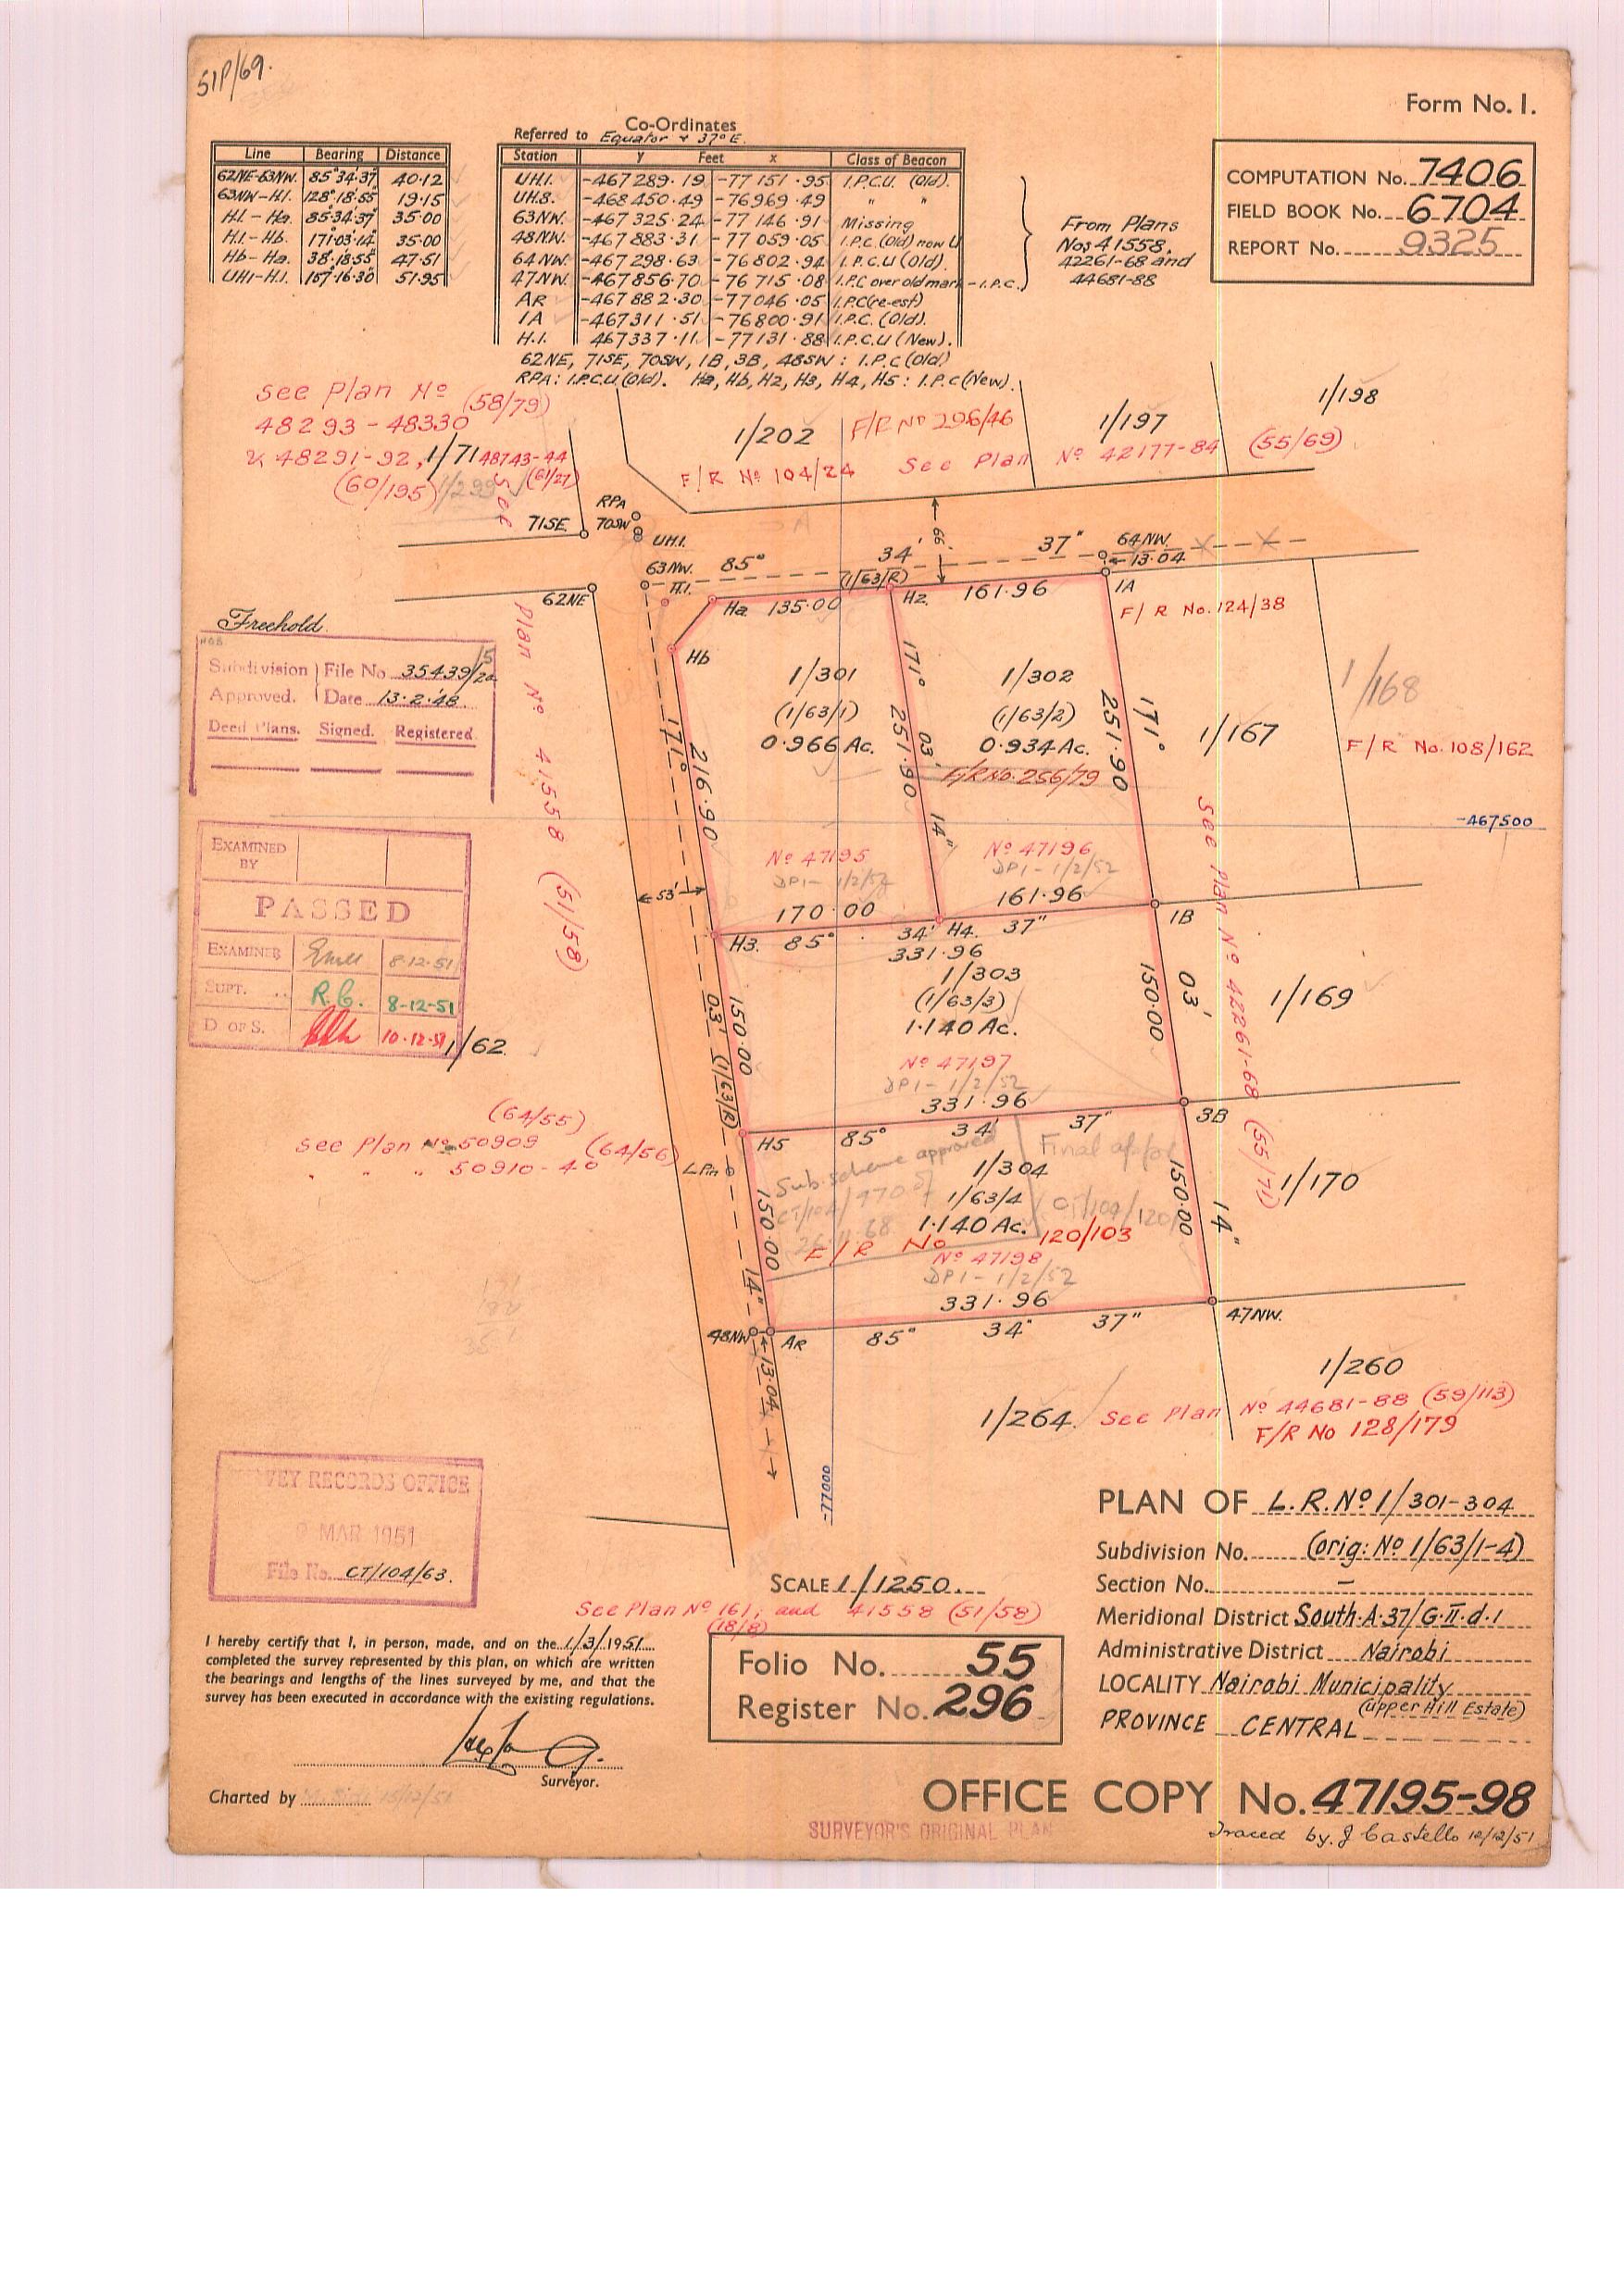 51P/69.
Form No. 1.
Co-Ordinates
Referred to Equator & 37° E.
Line Bearing Distance
62NE-63NW. 85°34'37" 40.12
63NW-H.1. 128°.18'.55" 19.15
H.1.-Ha. 85°34'37" 35.00
H.1-Hb. 171°.03'.14" 35.00
Hb-Ha. 38°.18'.55" 47.51
UH1-H.1. 157°.16'.30" 51.95
Station y Feet x Class of Beacon
UH.1. -467 289.19 -77 151.95 I.P.C.U. (Old).
UH.8. -468 450.49 -76 969.49 " "
63NW. -467 325.24 -77 146.91 Missing
48NW. -467 883.31 -77 059.05 I.P.C. (Old) now U
64NW. -467 298.63 -76 802.94 I.P.C.U (Old).
47NW. -467 856.70 -76 715.08 I.P.C over old mark - I.P.C.
AR -467 882.30 -77046.05 I.P.C (re-est)
1A -467 311.51 -76800.91 I.P.C. (Old).
H.1. 467337.11 -77131.88 I.P.C.U (New).
62NE, 71SE, 70SW, 1B, 3B, 48SW: I.P.C (Old)
RPA: I.P.C.U (Old). Ha, Hb, H2, H3, H4, H5: I.P.C (New).
From Plans
Nos 41558,
42261-68 and
44681-88
COMPUTATION No. 7406
FIELD BOOK No. 6704
REPORT No. 9325
See Plan No (58/79)
48293-48330
& 48291-92, 1/71 48743-44
(60/195) 1/299 (61/27)
1/202
F/R No 296/46
F/R No 104/24
1/197
1/198
See Plan No 42177-84 (55/69)
RPA
71SE 70SW
UH.1.
63NW.
H.1.
85° 34' 37"
66'
64NW.
13.04
62NE
Ha 135.00
(1/63/R)
H2. 161.96
1A
F/R No. 124/38
Hb
Freehold.
Subdivision File No 35439/15/20
Approved. Date 13.2.48.
Deed Plans. Signed. Registered
See Plan No 41558 (51/58)
1/301
(1/63/1)
0.966 Ac.
1/302
(1/63/2)
0.934 Ac.
F/R No. 256/79
171° 03' 14"
251.90
171° 03' 14"
251.90
216.90
171° 03' 14"
1/167
1/168
F/R No. 108/162
-467500
See Plan No 42261-68 (55/71)
No 47195
DP1- 1/2/52
170.00
No 47196
DP1- 1/2/52
161.96
53'
H3. 85° 34' H4. 37"
1B
331.96
1/303
(1/63/3)
1.140 Ac.
150.00
(1/63/R)
150.00
1/169
EXAMINED
BY
PASSED
EXAMINER 8-12-51
SUPT. R.G. 8-12-51
D OF S. 10-12-51
1/62
No 47197
DP1- 1/2/52
331.96
H5 85° 34' 37"
3B
(64/55)
See Plan No 50909 (64/56)
" " 50910-40
L.Pin
Sub. scheme approved
CT/104/
Final
1/304
1/63/4
1.140 Ac.
F/R No 120/103
No 47198
DP1- 1/2/52
331.96
150.00
150.00
1/170
48NW AR 85° 34' 37"
47NW.
13.04
1/260
1/264
See Plan No 44681-88 (59/113)
F/R No 128/179
-77000
SURVEY RECORDS OFFICE
MAR 1951
File No. CT/104/63.
SCALE 1/1250
See Plan No 161, and 41558 (51/58)
(18/8)
PLAN OF L.R. No 1/301-304
Subdivision No. (orig: No 1/63/1-4)
Section No. -
Meridional District South.A.37/G.II.d.1
Administrative District Nairobi
LOCALITY Nairobi Municipality
(Upper Hill Estate)
PROVINCE CENTRAL
I hereby certify that I, in person, made, and on the 1/3/1951
completed the survey represented by this plan, on which are written
the bearings and lengths of the lines surveyed by me, and that the
survey has been executed in accordance with the existing regulations.
Surveyor.
Charted by 15/12/51
Folio No. 55
Register No. 296
OFFICE COPY No. 47195-98
SURVEYOR'S ORIGINAL PLAN
Traced by. J Castello 12/12/51